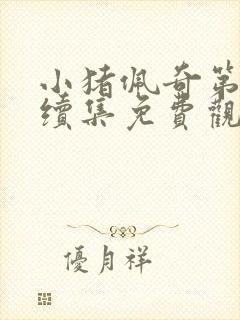 小猪佩奇第
續集免費觀
優月祥